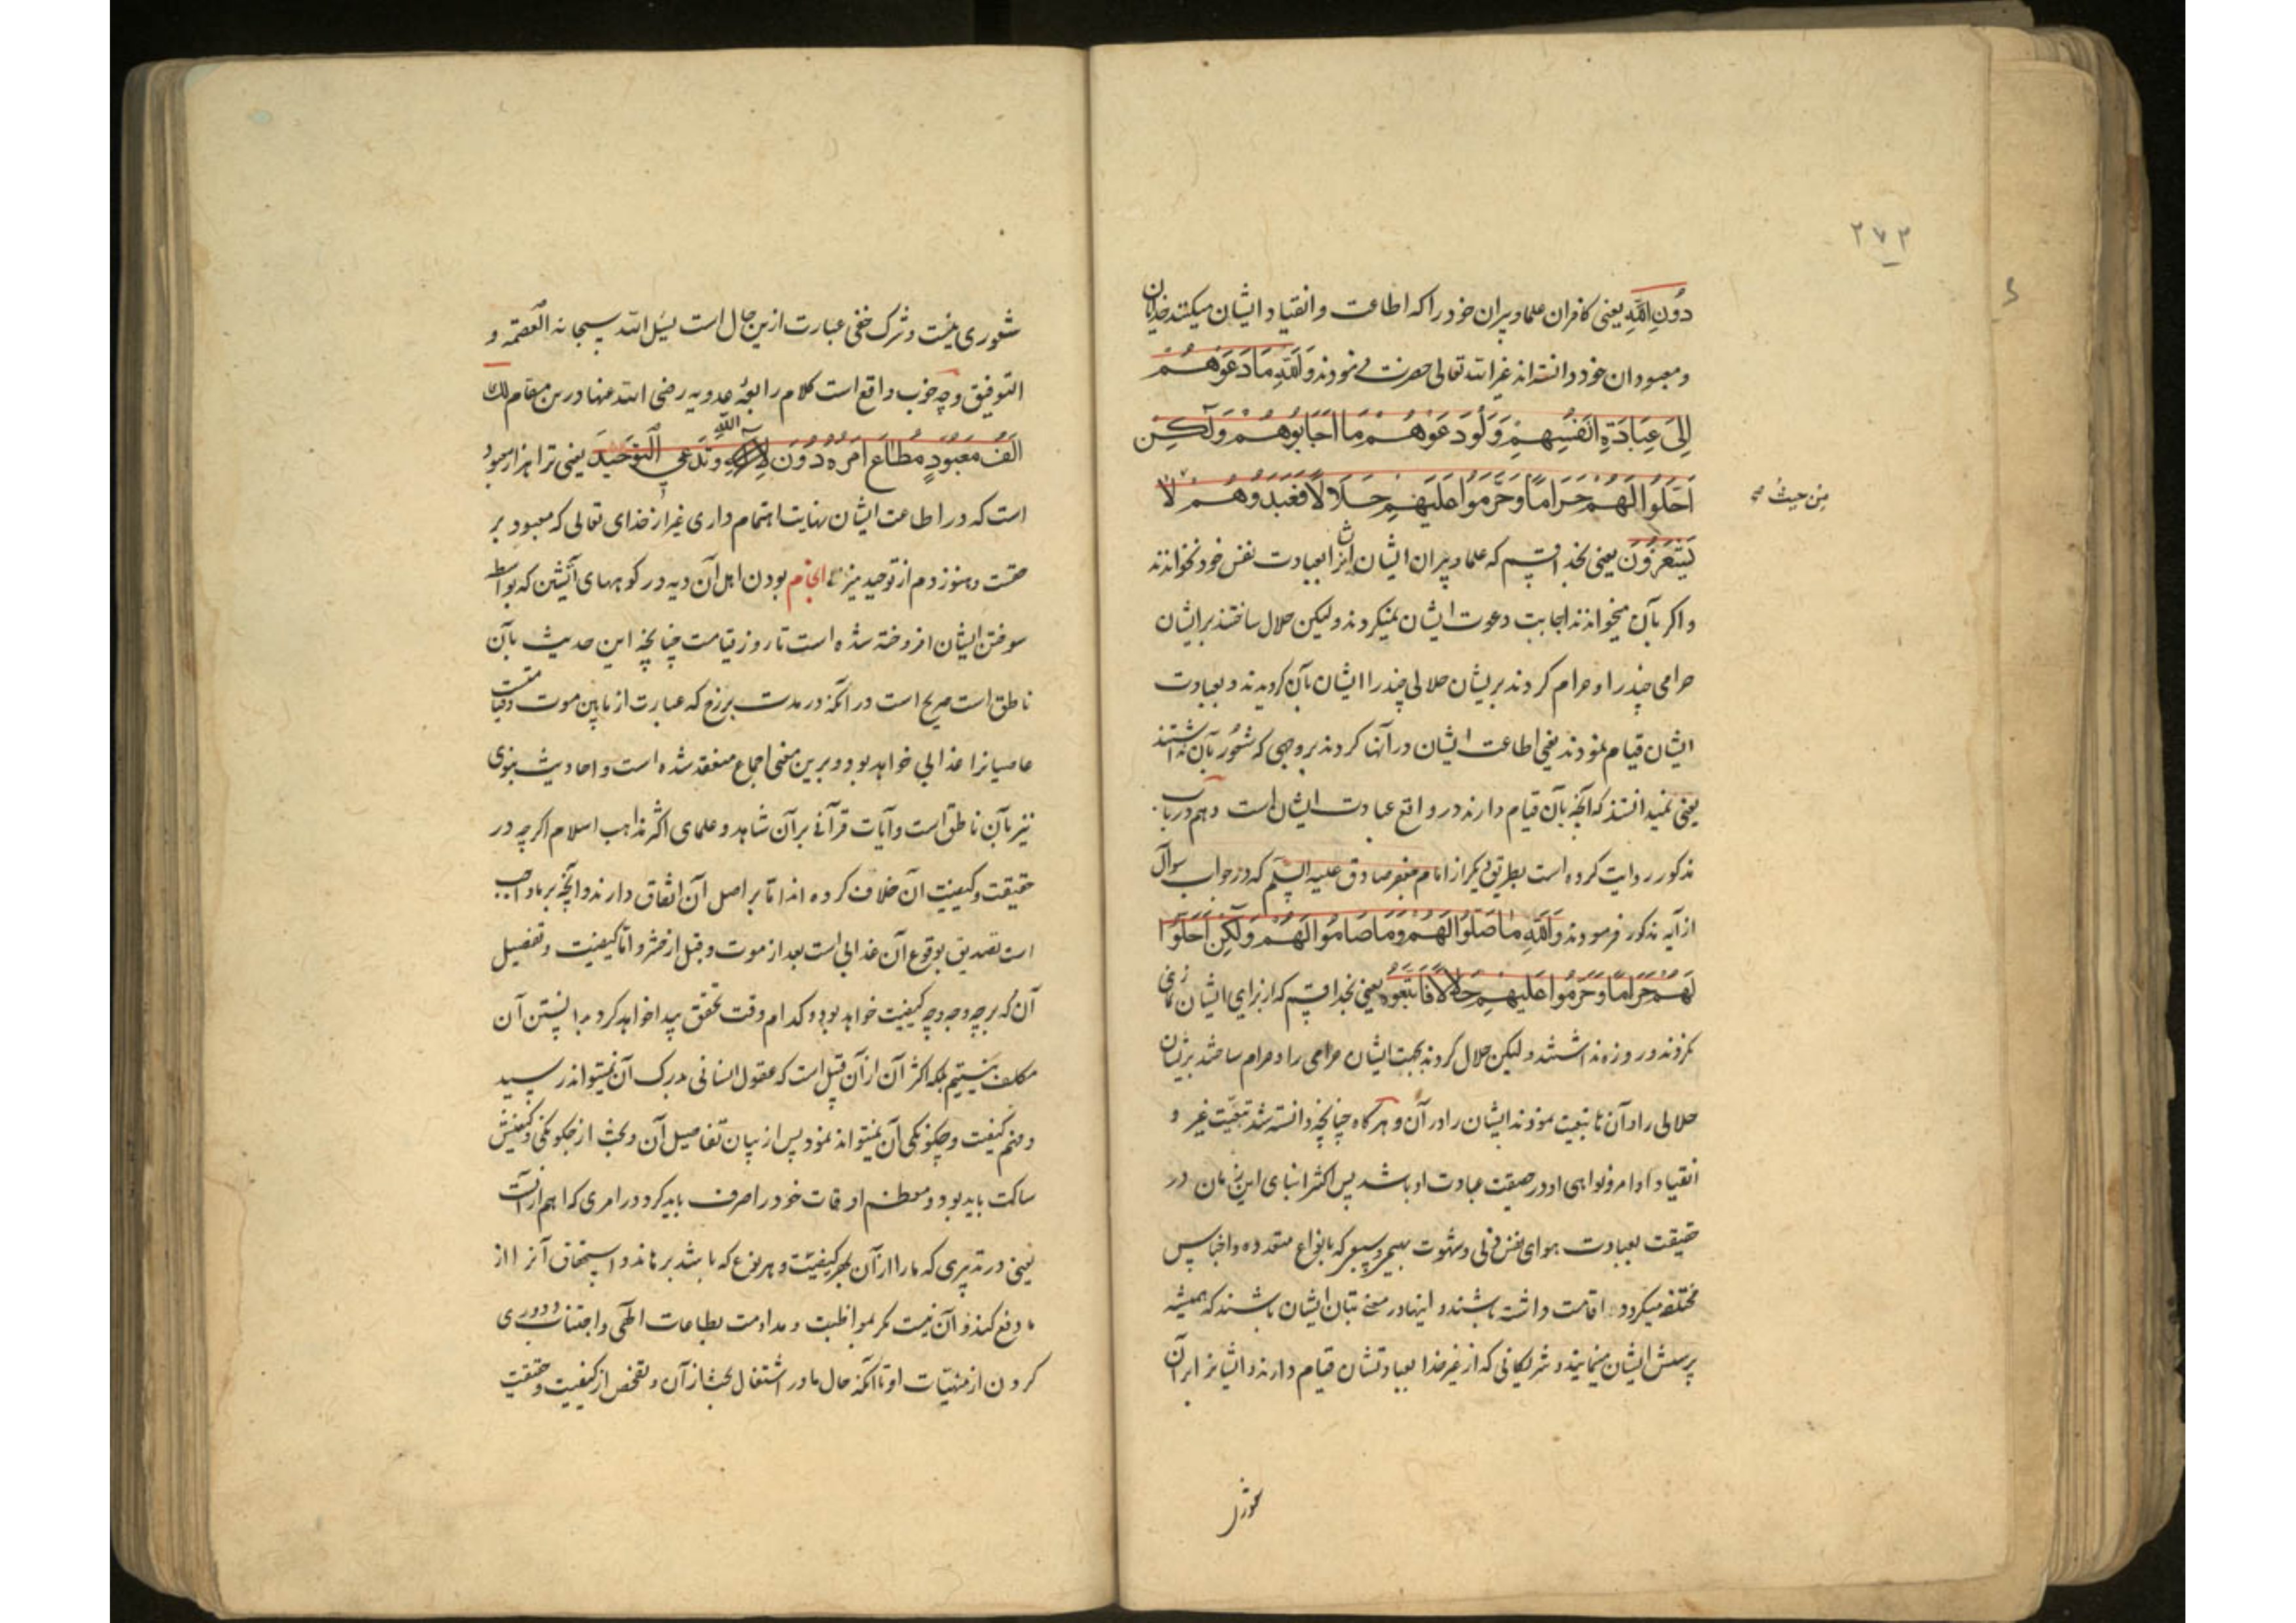 ۲۷۳
دُونِ اللهِ یعنی کافران علما و پیران خود را که اطاعت و انقیاد ایشان میکنند خدایان
و معبودان خود دانسته اند غیر از الله تعالی حضرت می نمودند وَاللهِ مَا دَعَوْهُمْ
اِلیَ عِبَادَةِ اَنفُسِهِمْ وَلَوْ دَعَوْهُمْ مَا اَجَابُوهُمْ وَلٰکِنْ
اَحَلُّوا لَهُمْ حَرَامًا وَحَرَّمُوا عَلَیْهِمْ حَلَالًا فَعَبَدُوهُمْ لَا
من حیث صح
یَشْعُرُوْنَ یعنی بخدا قسم که علما و پیران ایشان ایشانرا بعبادت نفس خود نخواندند
و اکر بآن میخواندند اجابت دعوت ایشان نمیکردند ولیکن حلال ساختند برایشان
حرامی چند را و حرام کردند بریشان حلالی چند را ایشان بآن کرویدند و بعبادت
ایشان قیام نمودند یعنی اطاعت ایشان در آنها کردند بر وجهی که شعور بآن نداشتند
یعنی نمیدانستند که آنچه بآن قیام دارند در واقع عبادت ایشان است و هم در باب
مذکور روایت کرده است بطریق دیکر از امام جعفر صادق علیه السلم که در جواب سوال
از آیه مذکور فرمودند وَاللهِ مَا صَلُّوا لَهُمْ وَمَا صَامُوا لَهُمْ وَلٰکِنْ اَحَلُّوا
لَهُمْ حَرَامًا وَحَرَّمُوا عَلَیْهِمْ حَلَالًا فَاتَّبَعُوهُمْ یعنی بخدا قسم که از برای ایشان نمازی
نکردند و روزه نداشتند ولیکن حلال کردند بجهت ایشان حرامی را و حرام ساختند بریشان
حلالی را و آن تبعیت نمودند ایشان را در آن و هر کاه چنانچه دانسته شد تبعیت غیر و
انقیاد اوامر و نواهی او در حقیقت عبادت او باشد پس اکثر ابنای این زمان در
حقیقت بعبادت هوای نفس و شهوت که بانواع متعدده و اجناس
مختلفه میکردد اقامت داشته باشند و اینها در معنی بتان ایشان باشند که همیشه
پرستش ایشان مینمایند و شریکانی که از غیر خدا بعبادتشان قیام دارند و ایشانرا بر آن
شعوری نیست و شرک خفی عبارت ازین حال است نسئل الله سبحانه العصمة و
التوفیق و چه خوب واقع است کلام رابعه عدویه رضی الله عنها درین مقام لک
اَلْفُ مَعْبُودٍ مُطَاعٍ اَمْرُهُ دُوْنَ اللهِ وَتَدَّعِی التَّوْحِیْدَ یعنی ترا هزار معبود
است که در اطاعت ایشان نهایت اهتمام داری غیر از خدای تعالی که معبود بر
حقست و هنوز دم از توحید میزنی انجام بودن اهل آن دیه در کوههای آتشین که بواسطه
سوختن ایشان افروخته شده است تا روز قیامت چنانچه این حدیث بآن
ناطق است صریح است در آنکه در مدت برزخ که عبارت از مابین موت و قیامتست
عاصیانرا عذابی خواهد بود و برین معنی اجماع منعقد شده است و احادیث نبوی
نیز بآن ناطق است و آیات قرآنی بر آن شاهد و علمای اکثر مذاهب اسلام اکرچه در
حقیقت و کیفیت آن خلاف کرده اند اما بر اصل آن اتفاق دارند و آنچه بر ما واجب
است تصدیق بوقوع آن عذابی است بعد از موت و قبل از حشر و اما کیفیت و تفصیل
آن که بر چه وجه و چه کیفیت خواهد بود و کدام وقت تحقق پیدا خواهد کرد بدانستن آن
مکلف نیستیم بلکه اکثر آن از آن قبیل است که عقول انسانی بدرک آن نمیتواند رسید
و فهم کیفیت و چکونکی آن نمیتواند نمود پس از بیان تفاصیل آن و بحث از چکونکی و کیفیتش
ساکت باید بود و معظم اوقات خود را صرف باید کرد در امری که اهم از آنست
یعنی در تدبیری که ما را از آن بهر کیفیت و هر نوع که باشد برهاند و استحقاق آنرا از
ما دفع کند و آن نیست مکر مواظبت و مداومت بطاعات الهی و اجتناب و دوری
کردن از منهیات او تا آنکه حال ما در اشتغال بحث از آن و تفحص از کیفیت و حقیقت